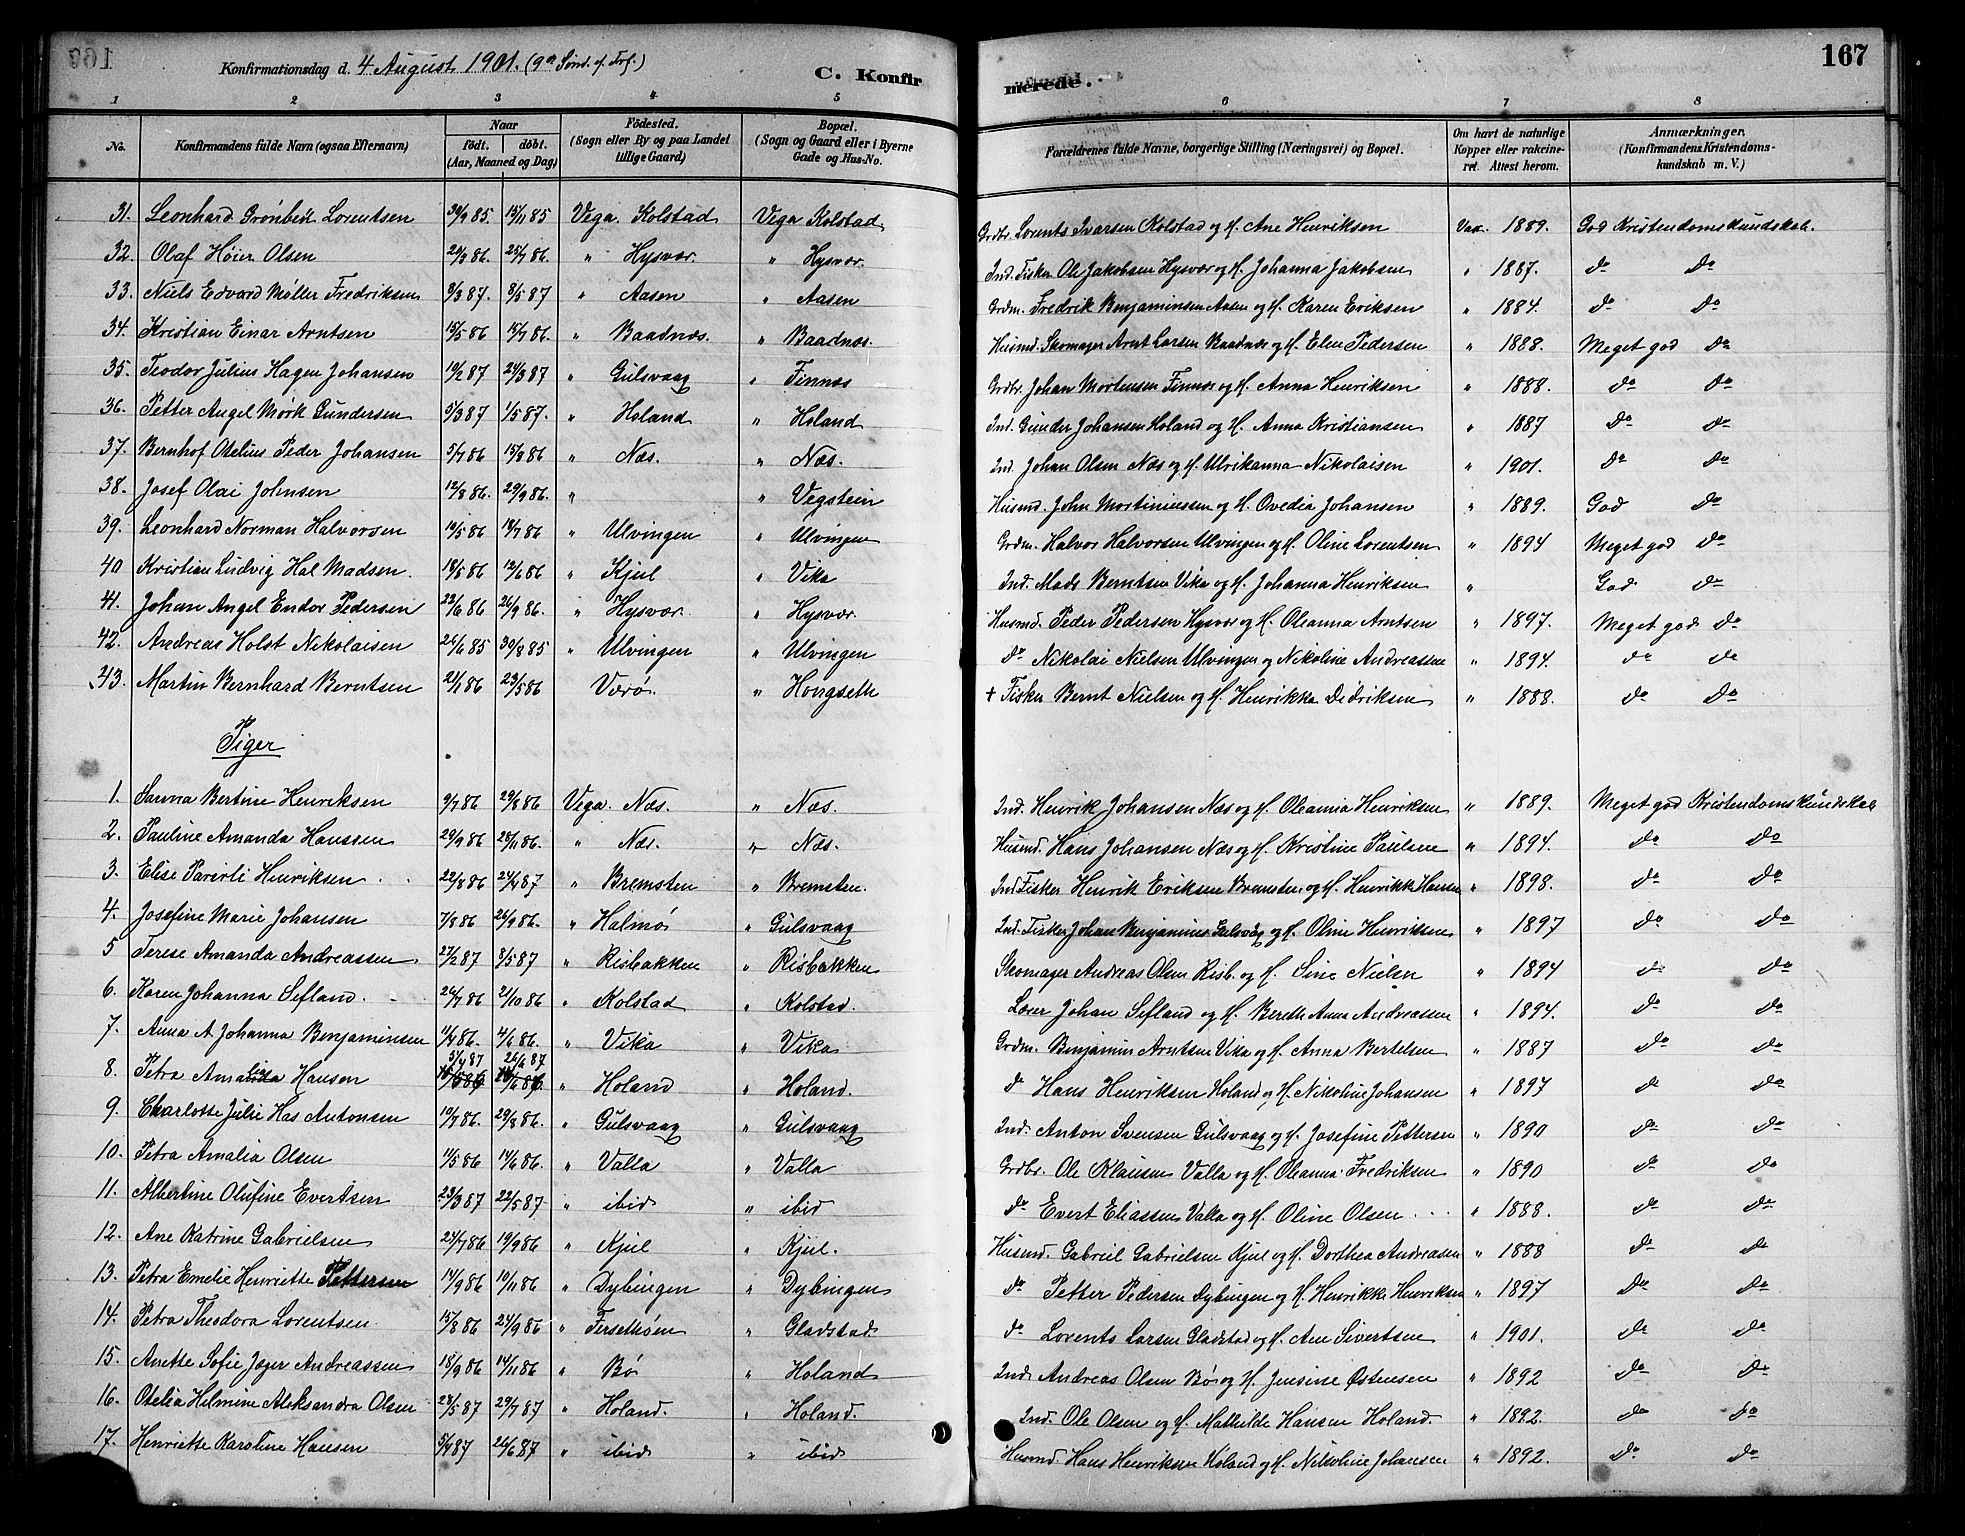 Konfirmationsdag d. 4 August 1901. (9de Sönd. e. Tref.)
C. Konfirmerede.
167
1 2 3 4 5 6 7 8
No. Konfirmandens fulde Navn (ogsaa Efternavn) Naar födt. döbt. (Aar, Maaned og Dag) Födested. (Sogn eller By og paa Landet tillige Gaard) Bopæl. (Sogn og Gaard eller i Byerne Gade og Hus-No. Forældrenes fulde Navne, borgerlige Stilling (Næringsvei) og Bopæl. Om havt de naturlige Kopper eller vakcineret. Attest herom. Anmærkninger. (Konfirmandens Kristendomskundskab m. V.)
31. Leonhard Grönbeck Lorentsen 30/9 85. 15/11 85 Vega. Kolstad Vega Kolstad Grdbr. Lorents Ivarsen Kolstad og H. Ane Henriksen Vax. 1889. God Kristendomskundskab.
32. Olaf Høier Olsen 20/3 86. 25/7 86. " Hysvær " Hysvær. Ind. Fisker Ole Jakobsen Hysvær og H. Johanna Jakobsen " 1887. do do
33. Niels Edvard Møller Fredriksen 8/3 87. 8/5 87 " Aasen " Aasen Grdm. Fredrik Benjaminsen Aasen og H. Karen Eriksen " 1884. do do
34. Kristian Einar Arntsen 15/5 86 15/7 86. " Baadnæs. " Baadnæs. Husmd. Skomager Arnt Larsen Baadnæs og H. Elen Pedersen " 1888. Meget god do
35. Teodor Julius Hagen Johansen 10/2 87 24/3 87 " Gulsvaag " Finnæs Grdbr. Johan Mortensen Finnæs og H. Anna Henriksen " 1888. do do
36. Petter Angel Mørk Gundersen 5/3 87 1/5 87. " Holand " Holand Ind. Gunder Johansen Holand og H. Anna Kristiansen " 1887 do do
37. Bernhof Otelius Peder Johansen 5/7 86 15/8 86 " Næs. " Næs. Ind. Johan Olsen Næs og H. Ulrikanna Nikolaisen " 1901. do do
38. Josef Olai Johnsen 12/8 86. 29/9 86. " " Vegstein Husmd. John Mortiniussen og H. Ovedia Johansen " 1889. God do
39. Leonhard Norman Halvorsen 10/5 86 18/7 86 " Ulvingen " Ulvingen Grdm. Halvor Halvorsen Ulvingen og H. Oline Lorentsen " 1894 Meget god do
40 Kristian Ludvig Hal Madsen. 18/5 86 12/6 86 " Kjul " Vika Ind. Mads Berntsen Vika og H. Johanna Henriksen " God do
41. Johan Angel Endor Pedersen 22/6 86 26/9 86. " Hysvær. " Hysvær Husmd. Peder Pedersen Hysvær og H. Oleanna Arntsen " 1897. Meget god do
42. Andreas Holst Nikolaisen 26/6 85 30/8 85 " Ulvingen " Ulvingen do Nikolai Nielsen Ulvingen og Nikoline Andreassen " 1894. do do
43. Martin Bernhard Berntsen 21/1 86 23/5 86 " Værø. " Hongseth + Fisker Bernt Nielsen og H. Henrikka Didriksen " 1888. do do
Piger
1. Sanna Bertine Henriksen 9/7 86 29/8 86 Vega. Næs. " Næs. Ind. Henrik Johansen Næs og H. Oleanna Henriksen " 1889. Meget god Kristendomskundskab
2. Pauline Amanda Hanssen 29/9 86 28/11 86. " Næs. " Næs. Husmd. Hans Johansen Næs og H. Kristine Paulsen " 1894. do do
3. Elise Henriksen 22/8 86 24/4 87 " Bremsten " Bremsten. Ind. Fisker Henrik Eriksen Bremsten og H. Henrikke Hansen " 1898. do do
4. Josefine Marie Johansen 7/8 86 26/9 86. " Halmø " Gulsvaag Ind. Fisker Johan Benjaminsen Gulsvåg og H. Oline Henriksen " 1897 do do
5 Terese Amanda Andreassen. 27/2 87 8/5 87 " Risbakken " Risbakken Skomager Andreas Olsen Risb. og H. Sine Nielsen " 1894 do do
6. Karen Johanna Sefland. 26/7 86 21/10 86 " Kolstad " Kolstad. Lærer Johan Sefland og H. Bereth Anna Andreassen " 1894. do do
7. Anna A Johanna Benjaminsen 11/4 86. 4/6 86. " Vika " Vika Grdm. Benjamin Arntsen Vika og H. Anna Bertelsen " 1887 do do
8. Petra Amalia Hansen 5/4 87 26/6 87 " Holand " Holand. do Hans Henriksen Holand og H. Nikoline Johansen " 1897 do do
9. Charlotte Julie Has Antonsen 10/7 86. 29/8 86. " Gulsvaag " Gulsvaag Ind. Anton Svensen Gulsvaag og H. Josefine Pettersen " 1890 do do
10. Petra Amalia Olsen 11/5 86 14/6 86. " Valla " Valla Grdbr. Ole Klausen Valla og H. Oleanna Fredriksen " 1890 do do
11. Albertine Olufine Evertsen 23/3 87 22/5 87 " ibid " ibid do Evert Eliassen Valla og H. Oline Olsen " 1888. do do
12. Ane Katrine Gabrielsen 24/7 86 19/9 86 " Kjul " Kjul. Husmd. Gabriel Gabrielsen Kjul og H. Dorthea Andreasen " 1888 do do
13. Petra Emelie Henriette Pettersen 14/9 86 10/11 86 " Dybingen " Dybingen do Petter Pedersen Dybingen og H. Henrikke Henriksen " 1897 do do
14. Petra Theodora Lorentsen 15/8 86 24/9 86 " " Gladstad do Lorents Larsen Gladstad og H. Ane Sivertsen " 1901. do do
15. Anette Sofie Jæger Andreassen 18/9 86 14/11 86 " Bø " Holand Ind. Andreas Olsen Bø og H. Jensine Østensen " 1892 do do
16. Otelia Helmine Aleksandra Olsen 27/5 87 29/7 87 " Holand. " Holand. Ind. Ole Olsen og H. Mathilde Hansen Holand " 1892. do do
17. Henriette Karoline Hansen 5/4 87 26/6 87 " ibid " ibid Husmd. Hans Henriksen Holand og H. Nikoline Johansen " 1892. do do